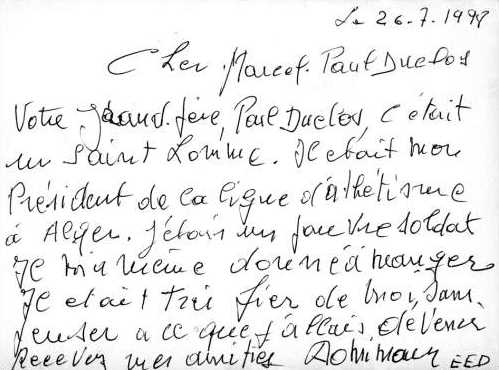 Le 26.7.1998
Cher Marcel. Paul Duclos
Votre grand. Père, Paul Duclos, c'était
un saint homme. Il était mon
Président de la ligue d'athétisme
à Alger. J'étais un pauvre soldat
Il m'a même donné à manger
Il etait tré fier de moi, sans
penser a ce que j'allais dévenir
Recevez mes amitiés